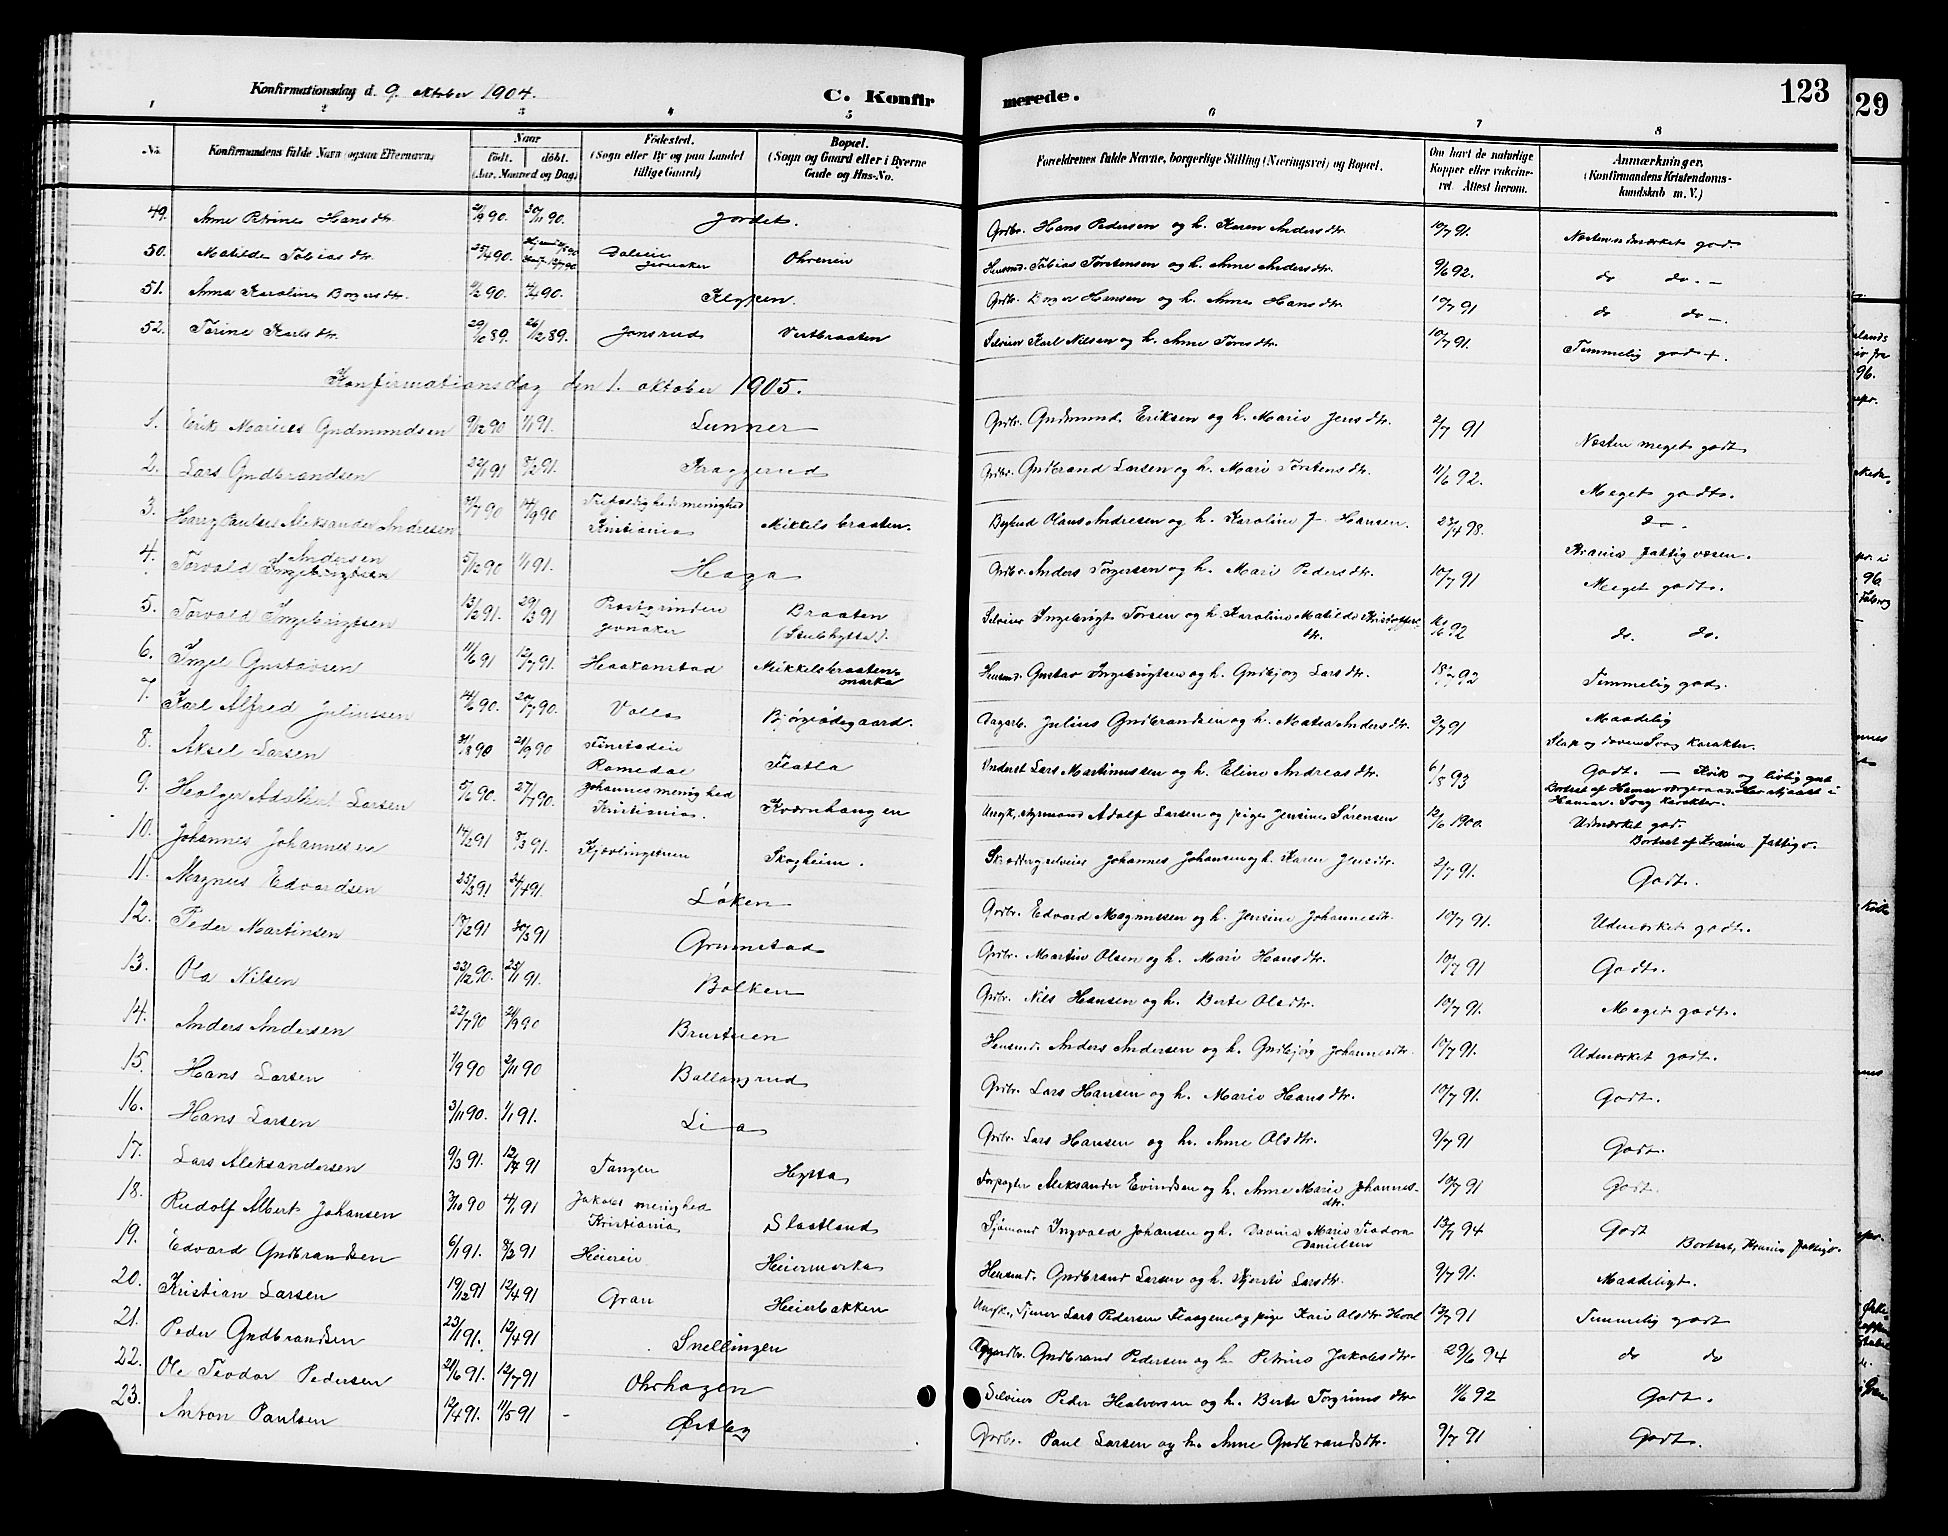 Konfirmationsdag d. 9. oktober 1904.
C. Konfirmerede.
123
29
1 2 3 4 5 6 7 8
No. Konfirmandens fulde Navn (ogsaa Efternavn) Naar født. døbt. (Aar, Maaned og Dag) Fødested. (Sogn eller By og paa Landet tillige Gaard) Bopæl. (Sogn og Gaard eller i Byerne Gade og Hus-No. Forældrenes fulde Navne, borgerlige Stilling (Næringsvei) og Bopæl. Om havt de naturlige Kopper eller vakcineret. Attest herom. Anmærkninger. (Konfirmandens Kristendomskundskab m. V.)
49. Anne Petrine Hansdtr. 30/11 90. Jordet. Grdbr. Hans Pedersen og h. Karen Andersdtr. 10/7 91. Næsten udmærket god.
50. Matilde Tobiasdtr. 25/4 90. Jevnaker Ohrenein Husmd. Tobias Torstensen og h. Anne Andersdtr. 9/6 92. do do. -
51. Anna Karoline Borgersdtr. 4/90. Klypen. Grdbr. Borger Hansen og h. Anne Hansdtr. 10/7 91 do do -.
52. Torine Karlsdtr. 29/6 89. 26/12 89. Jonsrud Vestbraaten Selveier Karl Nilsen og h. Anne Toresdtr. 10/7 91. Temmelig god +.
Konfirmationsdag den 1. oktober 1905.
1. Erik Marius Gudmundsen 9/12 90 1/1 91. Lunner Grdbr. Gudmund Eriksen og h. Marie Jensdtr. 2/7 91 Næsten meget godt
2. Lars Gudbrandsen 22/1 91 8/2 91. Kraggerud Grdbr. Gudbrand Larsen og h. Mari Torstensdtr. 11/6 92. Meget godt.
3. Harry Paulus Aleksander Andresen 14/9 90 Trefoldighedsmenighed Kristiania Mikkelsbraaten. Bybud Olaus Andresen og h. Karoline J. Hansen. 23/4 98. do -.
Krania fattigvæsen.
4. Torvald Andersen Ingebrigtsen 5/12 90 1/1 91. Haga Grdbr. Anders Torgersen og h. Mari Pedersdtr. 10/7 91 Meget godt.
5. Torvald Ingebrigtsen 13/2 91. 29/3 91 Prestgrinden Jevnaker Braaten (Stubhytta). Selveier Ingebrigt Torsen og h. Karoline Matilde Kristoffersdtr. 92 do. do.
6. Ingel Gustavsen 11/6 91 12/7 91. Haakenstad Mikkelsbraatenmarka Husmd. Gustav Ingebrigtsen og h. Gudbjør Larsdtr. 18/7 92 Temmelig god.
7. Karl Alfred Juliussen 14/6 90. 20/7 90. Volla Bjørgeødegaard. Dagarb. Julius Gudbrandsen og h. Matea Andersdtr. 2/7 91 Maadelig
Slap og doven Svag karakter.
8. Aksel Larsen 31/8 90 21/9 90 Romedal Flatla Underst Lars Martinussen og h. Eline Andreasdtr. 6/8 93 Godt. - Kvik og livlig gut
Bortsat af Hamar vergeraad. Har stjaalet i Hamar. Svag karakter.
9. Holger Adalbert Larsen 5/6 90. 27/7 90. Johannesmenighed Kristiania. Kværnhangen Ungk. styrmand Adolf Larsen og pige Jensine Sørensen 12/6 1900. Udmærket god.
Bortsat af Krania fattigv.
10. Johannes Johannesen 14/2 91 8/3 91. Kjørlingstuen Skogheim. Skrædderg. selveier Johannes Johansen og h. Karen Jensdtr. 2/7 91. Godt.
11. Magnus Edvardsen 25/3 91 26/4 91. Løken Grdbr. Edvard Magnussen og h. Jensine Johannesdtr. 10/7 91. Udmærket godt.
12. Peder Martinsen 18/2 91 30/3 91 Grinnstad Grdbr. Martin Olsen og h. Mari Hansdtr. 10/7 91 Godt.
13. Ola Nilsen 23/12 90. 25/1 91. Bolken Grdbr. Nils Hansen og h. Berte Olsdtr. 10/7 91. Meget godt.
14. Anders Andersen 22/7 90 21/9 90 Brustuen Husmd. Anders Andersen og h. Gudbjørg Johannesdtr. 10/7 91. Udmærket godt.
15. Hans Larsen 1/9 90 2/11 90 Ballangrud Grdbr. Lars Hansen og h. Marie Hansdtr. 10/7 91. Godt.
16. Hans Larsen 3/11 90. 1/1 91. Lia Grdbr. Lars Hansen og h. Anne Olsdtr. 9/7 91 Godt.
17. Lars Aleksandersen 9/3 91. 12/4 91 Tangen Hytta Forpagter Aleksander Evindsen og h. Anne Marie Johannesdtr. 10/7 91 Godt.
18. Rudolf Albert Johansen 3/10 90 4/1 91 Jakobs menighed Kristiania Slaatland Sjømand Ingvald Johansen og h. Davina Marie Teodora Danielsen 94 Godt
Bortsat, Krania fattigv.
19. Edvard Gudbrandsen 6/1 91. 8/2 91 Heieren Heiermarka Husmd. Gudbrand Larsen og h. Kjersti Larsdtr. 9/7 91. Maadeligt.
20. Kristian Larsen 12/4 91 Gran Heierbakken Ungk., Tjener Lars Pedersen Flaagene og pige Kari Olsdtr Hval 91 Temmelig godt
21. Peder Gudbrandsen 23/1 91. 12/4 91 Snellingen Gudbrand Pedersen og h. Petrine Jakobsdtr. 29/6 94 do do
22. Ole Teodor Pedersen 21/6 91. 12/7 91 Ohrhagen Selveier Peder Halvorsen og h. Berte Torgrimsdtr. 11/6 92 Godt.
23. Anton Paulsen 12/4 91. 11/5 91 Østby Grdbr. Paul Larsen og h. Anne Gudbrandsdtr. 9/7 91 Godt.